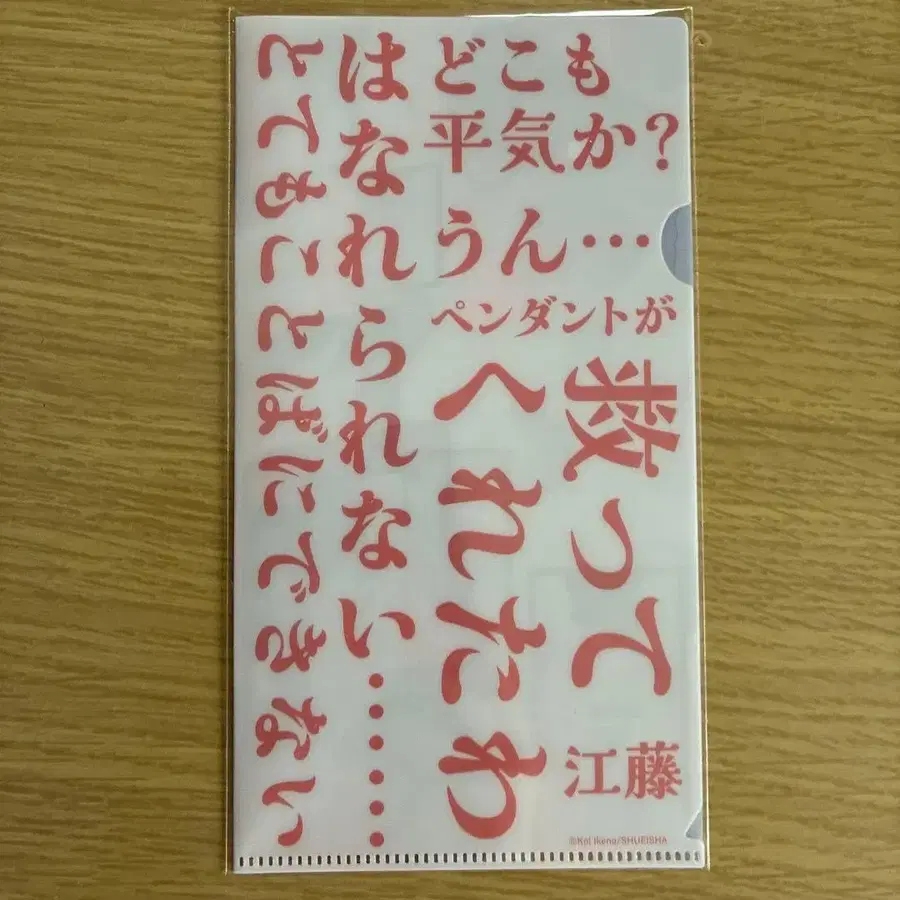 どこも
平気か?
うん…
ペンダントが
救って
くれたわ
江藤
はなれられない……
とてもことばにできない
©Koi Ikeno/SHUEISHA